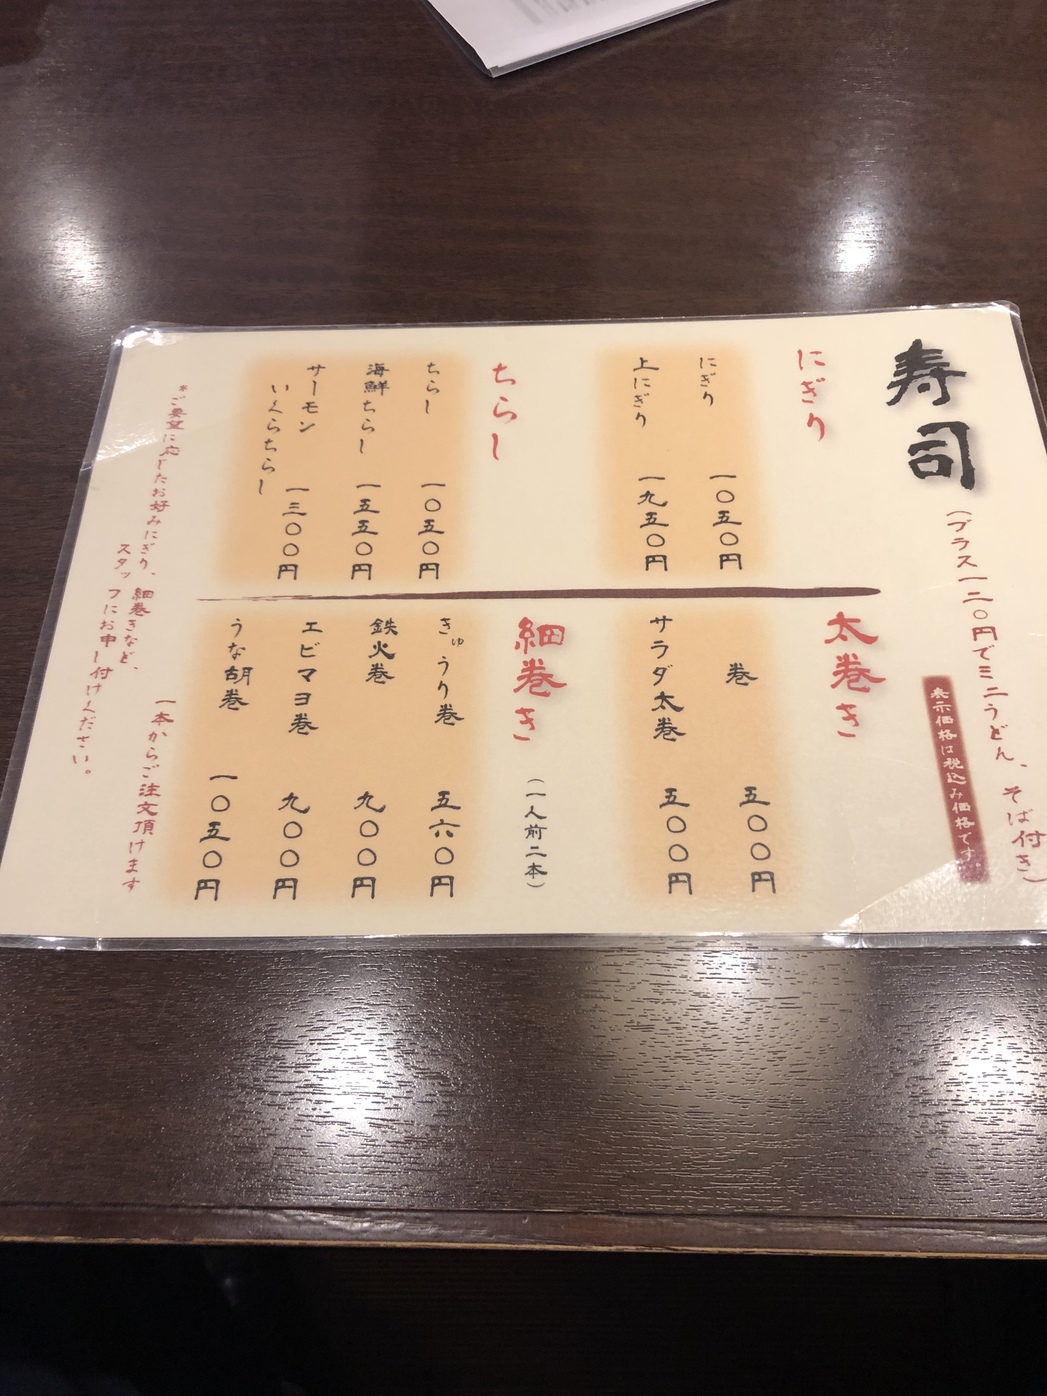 寿司
(プラス一二〇円でミニうどん、そば付き)
表示価格は税込み価格です。
にぎり
にぎり 一〇五〇円
上にぎり 一九五〇円
ちらし
ちらし 一〇五〇円
海鮮ちらし 一五五〇円
サーモン
いくらちらし 一三〇〇円
太巻き
巻 五〇〇円
サラダ太巻 五〇〇円
細巻き
(一人前二本)
きゅうり巻 五六〇円
鉄火巻 九〇〇円
エビマヨ巻 九〇〇円
うな胡巻 一〇五〇円
一本からご注文頂けます
*ご要望に応じたお好みにぎり、細巻きなど、
スタッフにお申し付けください。